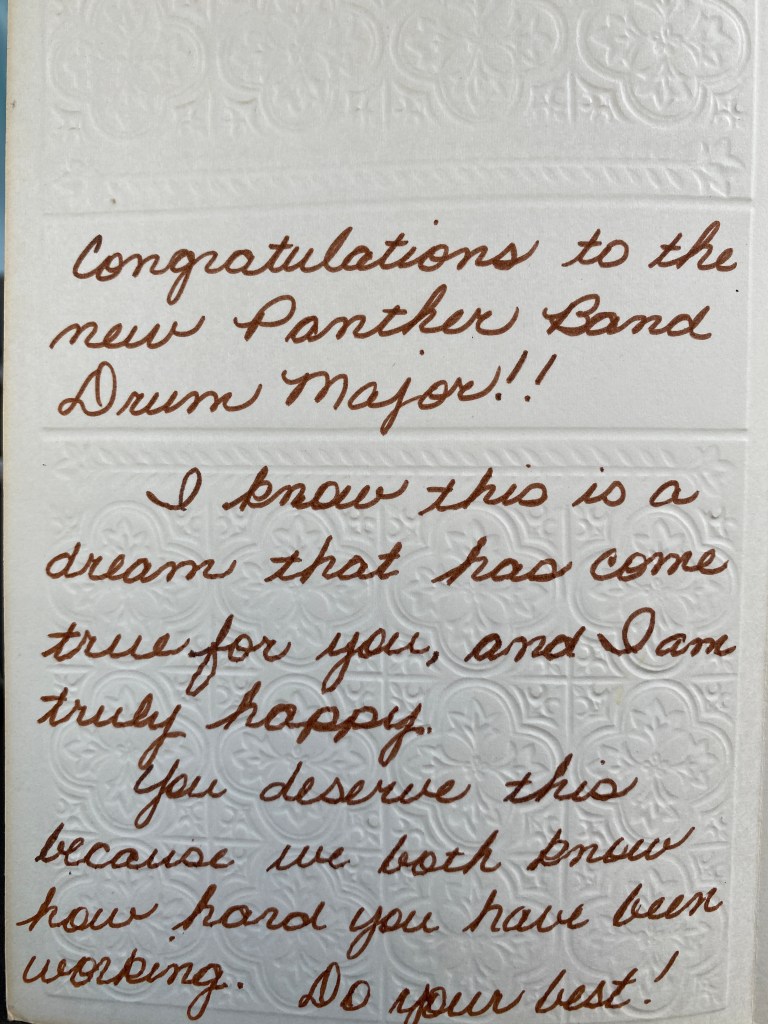 Congratulations to the
new Panther Band
Drum Major!!
I know this is a
dream that has come
true for you, and I am
truly happy.
You deserve this
because we both know
how hard you have been
working. Do your best!